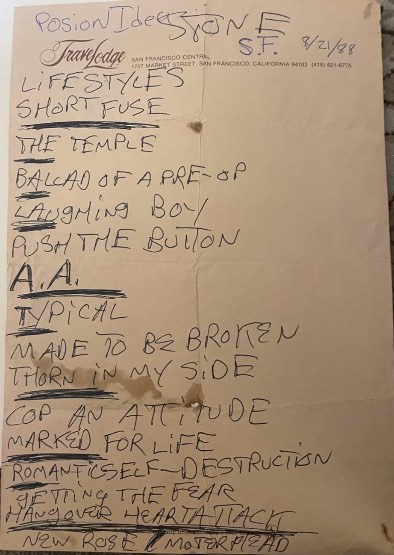 Posion Idea STONE
S.F. 8/21/88
Travelodge
SAN FRANCISCO CENTRAL
1707 MARKET STREET, SAN FRANCISCO, CALIFORNIA 94103 (415) 621-6775
LIFESTYLES
SHORT FUSE
THE TEMPLE
BALLAD OF A PRE-OP
LAUGHING BOY
PUSH THE BUTTON
A.A.
TYPICAL
MADE TO BE BROKEN
THORN IN MY SIDE
COP AN ATTITUDE
MARKED FOR LIFE
ROMANTIC SELF-DESTRUCTION
GETTING THE FEAR
HANGOVER HEARTATTACK
NEW ROSE / MOTORHEAD